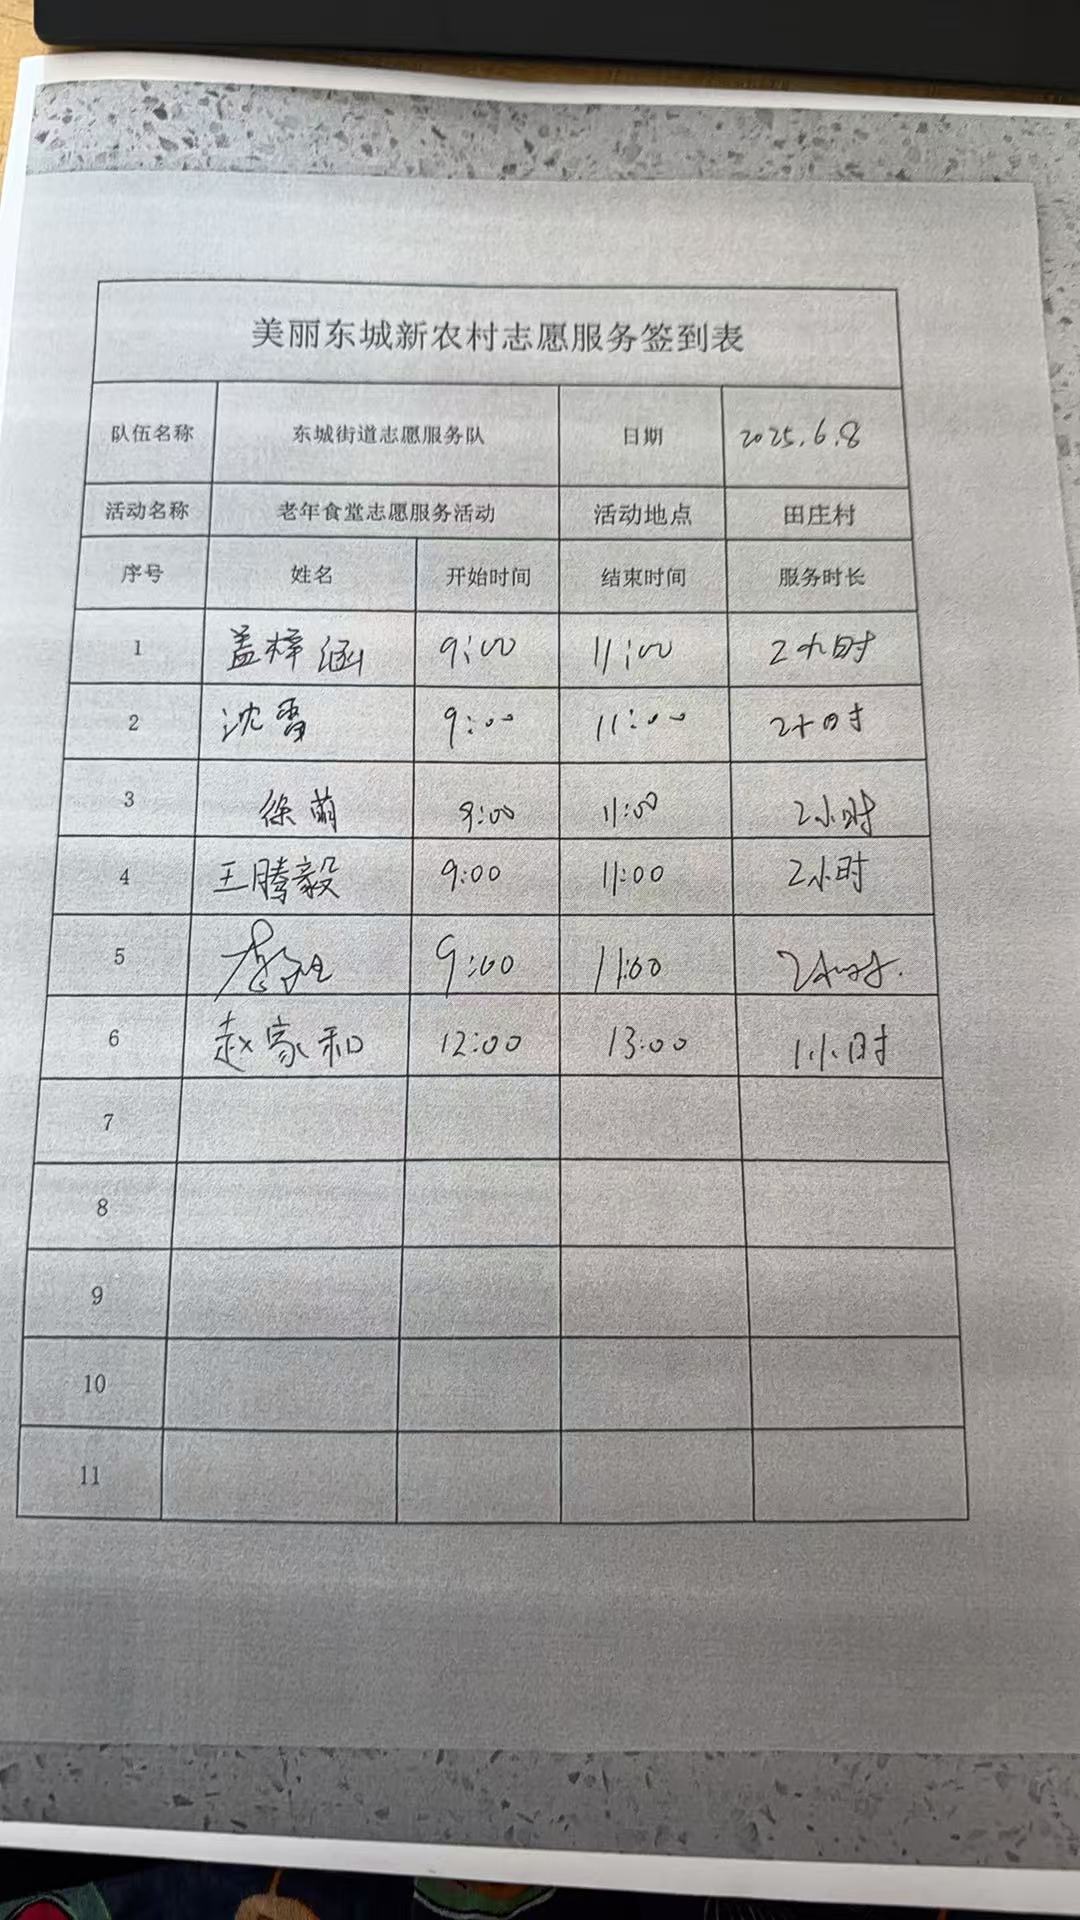 美丽东城新农村志愿服务签到表
队伍名称 东城街道志愿服务队 日期 2025.6.8
活动名称 老年食堂志愿服务活动 活动地点 田庄村
序号 姓名 开始时间 结束时间 服务时长
1 盖梓涵 9:00 11:00 2小时
2 沈雪 9:00 11:00 2小时
3 徐萌 9:00 11:00 2小时
4 王腾毅 9:00 11:00 2小时
5 9:00 11:00 2小时.
6 赵家和 12:00 13:00 1小时
7
8
9
10
11